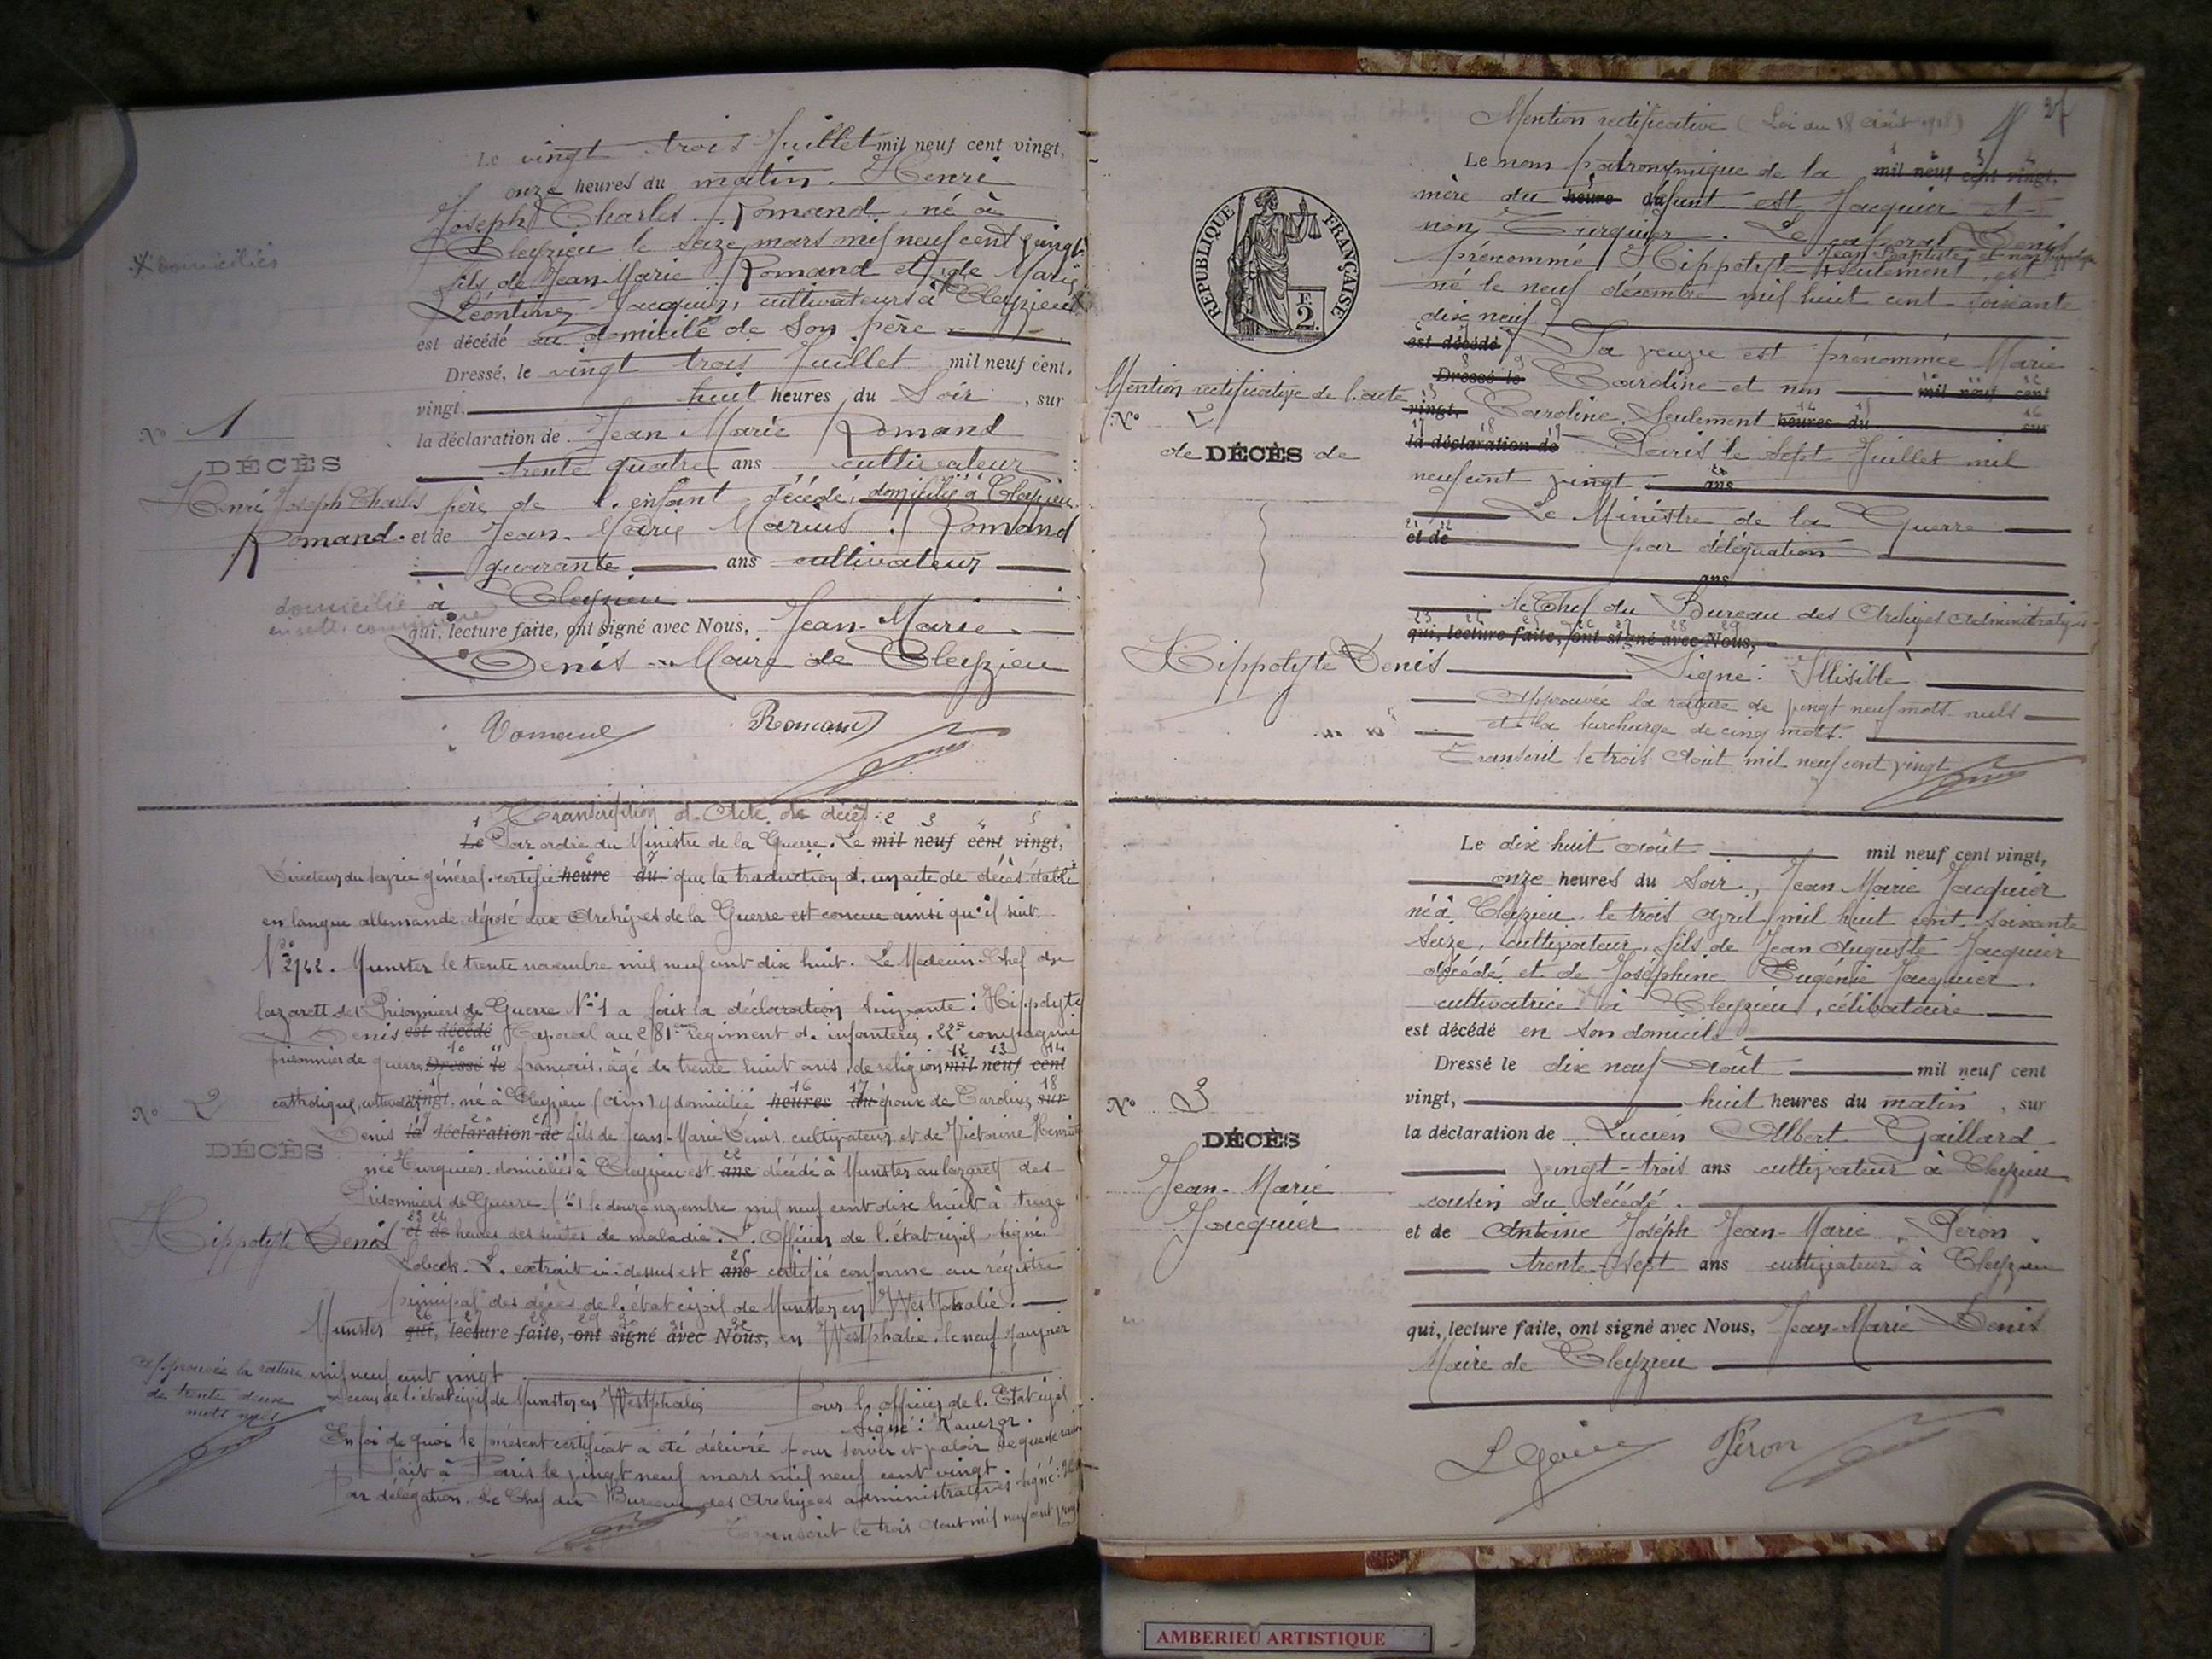 Le vingt trois Juillet mil neuf cent vingt,
onze heures du matin. Henri
Joseph Charles Romand, né à
Cleyzieu le seize mars mil neuf cent vingt
fils de Jean-Marie Romand et de Marie
Léontine Jacquier, cultivateurs à Cleyzieu
* domiciliés
est décédé au domicile de son père
Dressé, le vingt trois Juillet mil neuf cent,
vingt. huit heures du Soir, sur
la déclaration de Jean Marie Romand
trente quatre ans cultivateur
père de l'enfant décédé, domicilié à Cleyzieu
et de Jean-Marie Marius Romand
quarante ans cultivateur
domicilié à Cleyzieu
en cette commune
qui, lecture faite, ont signé avec Nous, Jean-Marie
Denis Maire de Cleyzieu
Romand Romand
No 1
DÉCÈS
Henri Joseph Charles
Romand.
Transcription d'Acte de décès.
Le Par ordre du Ministre de la Guerre. Le mil neuf cent vingt,
Directeur du service général certifie heure du que la traduction d'un acte de décès établi
en langue allemande déposé aux Archives de la Guerre est conçue ainsi qu'il suit.
No 2742. Munster le trente novembre mil neuf cent dix huit. Le Médecin-Chef du
lazarett des Prisonniers de Guerre No 1 a fait la déclaration suivante: Hippolyte
Denis est décédé Caporal au 281eme régiment d'infanterie, 22e compagnie
prisonnier de guerre Dressé le français, âgé de trente huit ans, de religion mil neuf cent
catholique, cultivateur vingt. né à Cleyzieu (Ain) y domicilié heures du époux de Caroline sur
Denis la déclaration de fils de Jean-Marie Denis cultivateur et de Victorine Henriette
née Turquier domiciliés à Cleyzieu est ans décédé à Munster au lazarett des
Prisonniers de Guerre No 1 le douze novembre mil neuf cent dix huit à treize
et de heures des suites de maladie. L'Officier de l'état civil signé
Lobeck. L'extrait ci-dessus est ans certifié conforme au registre
principal des décès de l'état civil de Munster en Westphalie.
Munster qui, lecture faite, ont signé avec Nous, en Westphalie, le neuf Janvier
mil neuf cent vingt
Sceau de l'état civil de Munster en Westphalie Pour l'officier de l'Etat civil
Signé:
En foi de quoi le présent certificat a été délivré pour servir et valoir ce que de raison
Fait à Paris le vingt neuf mars mil neuf cent vingt.
Par délégation. Le Chef du Bureau des Archives administratives signé:
Transcrit le trois Aout mil neuf cent vingt
No 2
DÉCÈS
Hippolyte Denis
Approuvée la rature
de trente deux
mots nuls
37
Mention rectificative (Loi du 18 Août 1918)
Le nom patronymique de la mil neuf cent vingt,
mère du heure défunt est Jacquier et
non Turquier. Le caporal Denis
prénommé Hippolyte Jean Baptiste et non Hippolyte seulement, est
né le neuf décembre mil huit cent soixante
dix neuf
est décédé Sa veuve est prénommée Marie
Dressé le Caroline et non mil neuf cent
vingt, Caroline, Seulement heures du sur
la déclaration de Paris le sept Juillet mil
neuf cent vingt ans
Le Ministre de la Guerre
et de par délégation
ans
le Chef du Bureau des Archives administratives
qui, lecture faite, ont signé avec Nous,
Signé: Illisible
Approuvée la rature de vingt neuf mots nuls
et la surcharge de cinq mots.
Transcrit le trois Août mil neuf cent vingt
RÉPUBLIQUE FRANÇAISE
2 F.
Mention rectificative de l'acte
No 2
de DÉCÈS de
Hippolyte Denis
Le dix huit Août mil neuf cent vingt,
onze heures du Soir, Jean Marie Jacquier
né à Cleyzieu, le trois Avril mil huit cent soixante
seize, cultivateur, fils de Jean Auguste Jacquier
décédé et de Joséphine Eugénie Jacquier
cultivatrice à Cleyzieu, célibataire
est décédé en son domicile
Dressé le dix neuf Août mil neuf cent
vingt, huit heures du matin, sur
la déclaration de Lucien Albert Gaillard
vingt-trois ans cultivateur à Cleyzieu
cousin du décédé.
et de Antoine Joséph Jean-Marie Péron
trente-sept ans cultivateur à Cleyzieu
qui, lecture faite, ont signé avec Nous, Jean-Marie Denis
Maire de Cleyzieu
Péron
No 3
DÉCÈS
Jean-Marie
Jacquier
AMBERIEU ARTISTIQUE